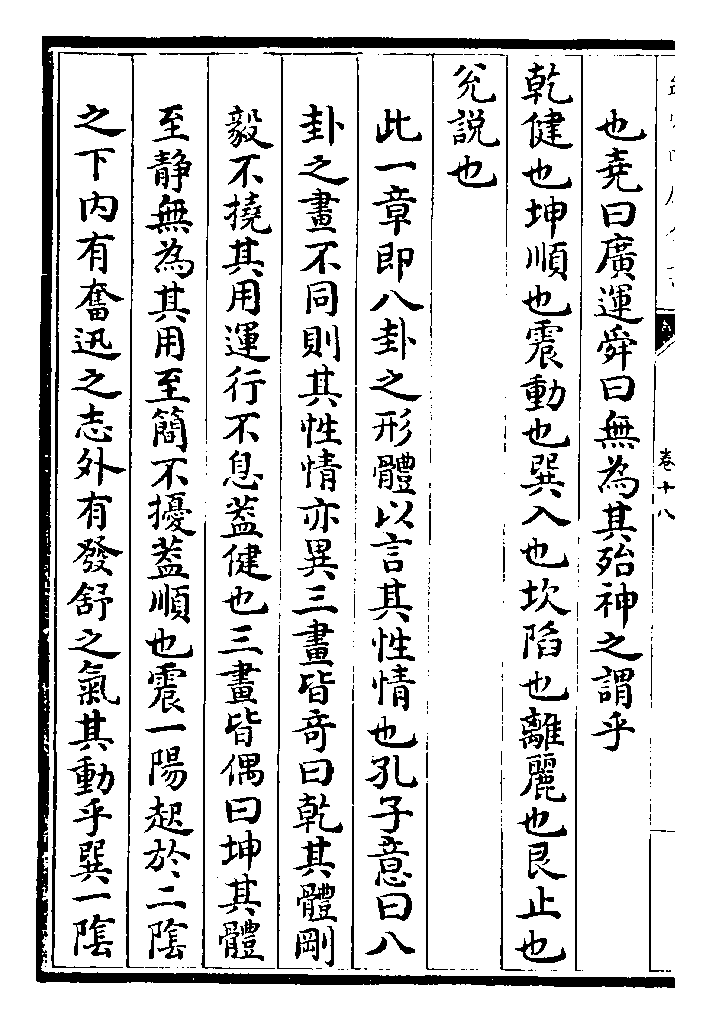 卷十八
也堯曰廣運舜曰無為其殆神之謂乎
乾健也坤順也震動也巽入也坎陷也離麗也艮止也
兊說也
此一章即八卦之形體以言其性情也孔子意曰八
卦之畫不同則其性情亦異三畫皆竒曰乾其體剛
毅不撓其用運行不息葢健也三畫皆偶曰坤其體
至静無為其用至簡不擾葢順也震一陽起於二陰
之下内有奮迅之志外有發舒之氣其動乎巽一陰